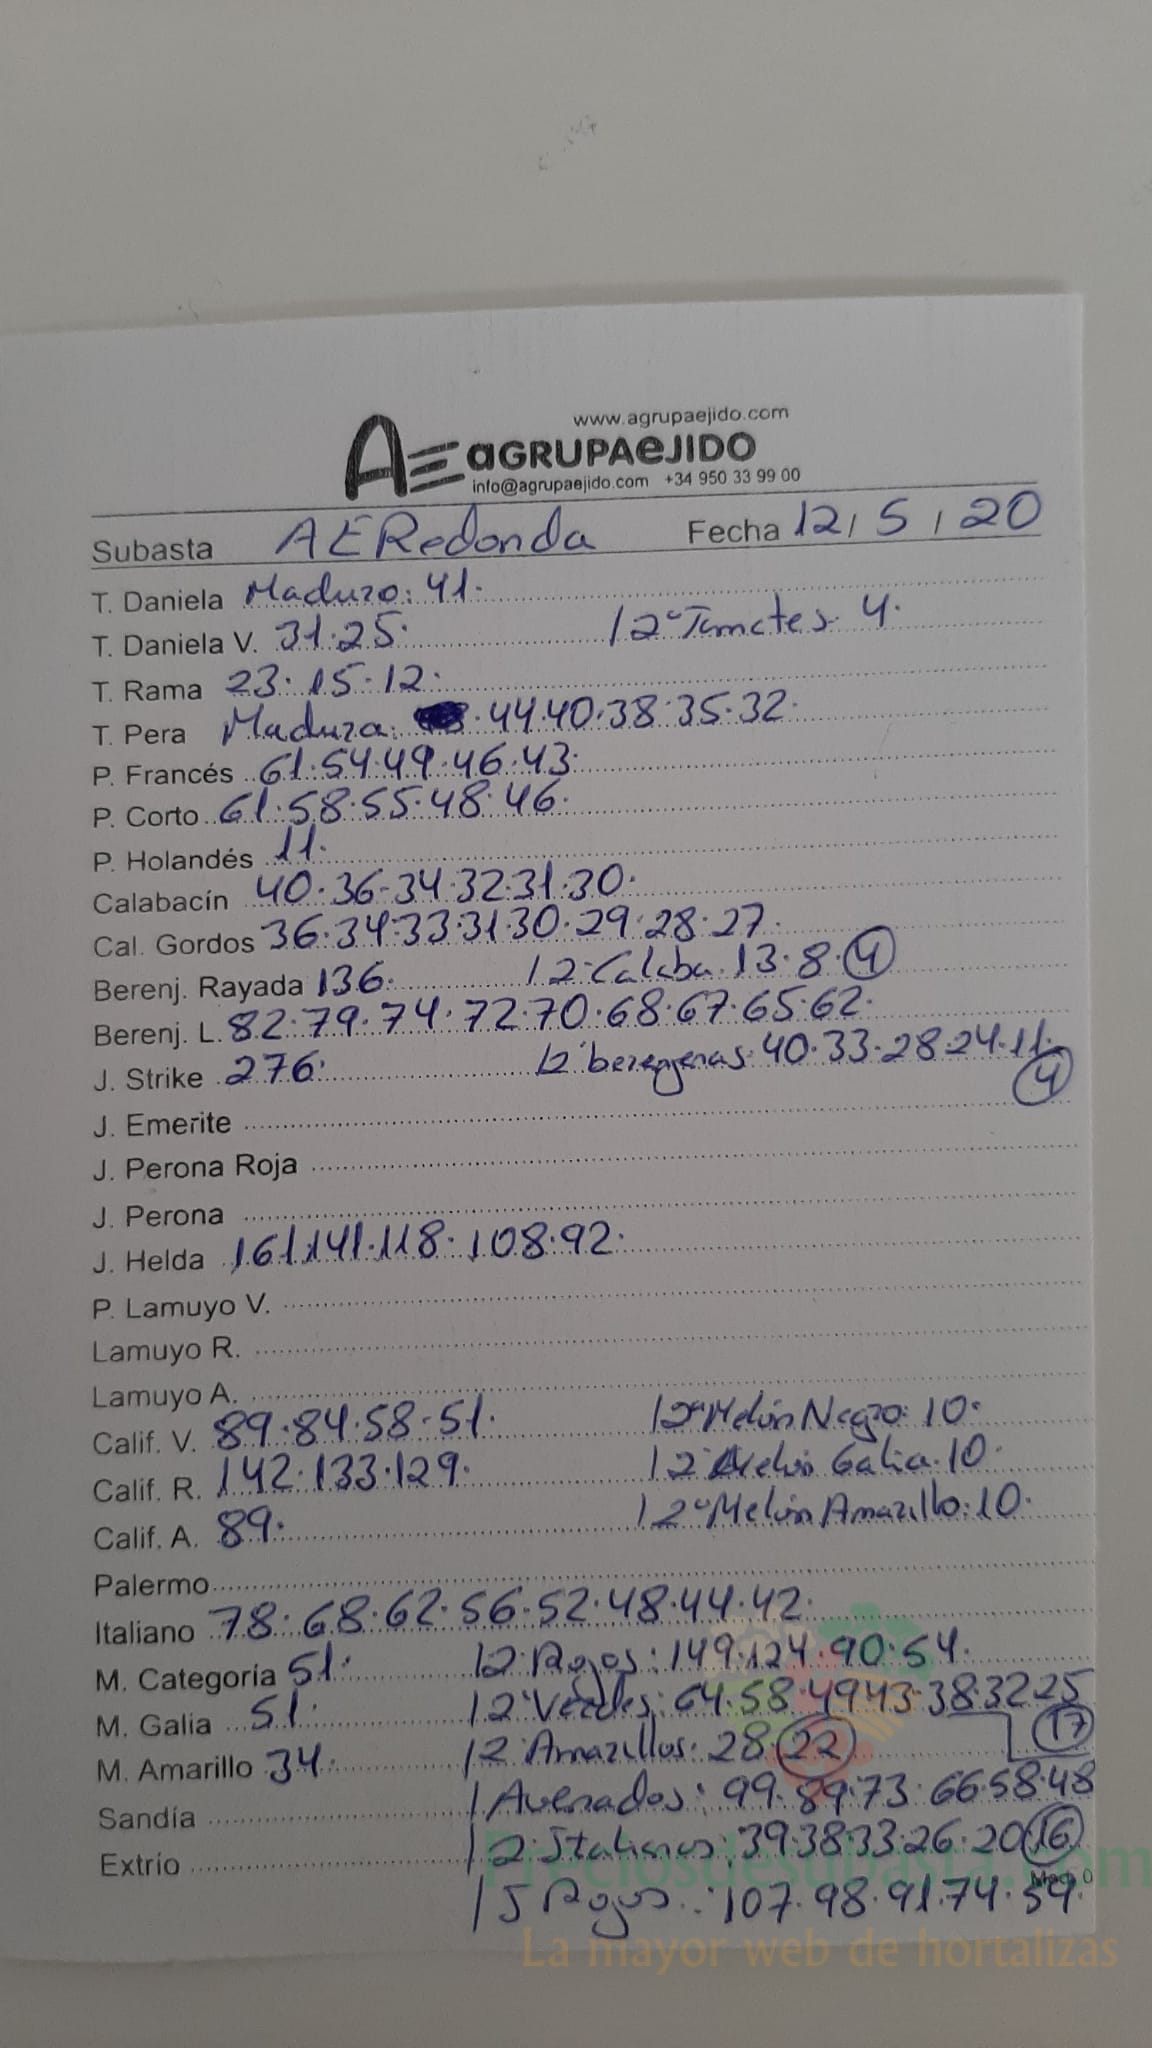 www.agrupaejido.com
AE aGRUPAeJIDO
info@agrupaejido.com +34 950 33 99 00
Subasta AERedonda Fecha 12/5/20
T. Daniela Maduro: 41.
T. Daniela V. 31.25. /2ª Tomates. 4.
T. Rama 23.15.12.
T. Pera Madura: .44.40.38.35.32.
P. Francés 61.54.49.46.43.
P. Corto 61.58.55.48.46.
P. Holandés 11.
Calabacín 40.36.34.32.31.30.
Cal. Gordos 36.34.33.31.30.29.28.27.
Berenj. Rayada 136. /2ª Calaba. 13.8.4
Berenj. L. 82.79.74.72.70.68.67.65.62.
J. Strike 276. /2ª berenjenas: 40.33.28.24.11.
4
J. Emerite
J. Perona Roja
J. Perona
J. Helda 161.141.118.108.92.
P. Lamuyo V.
Lamuyo R.
Lamuyo A.
Calif. V. 89.84.58.51. /2ª Melón Negro: 10.
Calif. R. 142.133.129. /2ª Melón Galia. 10.
Calif. A. 89. /2ª Melón Amarillo: 10.
Palermo
Italiano 78.68.62.56.52.48.44.42.
M. Categoría 51. /2ª Rojos: 149.124.90.54.
M. Galia 51. /2ª Verdes: 64.58.49.43.38.32.25
M. Amarillo 34. /2ª Amarillos: 28.22 17
Sandía /Avenados: 99.89.73.66.58.48
Extrío /2ª Italianos: 39.38.33.26.20.16
/J Rojos: 107.98.91.74.59.
Preciosdesubasta.com
La mayor web de hortalizas